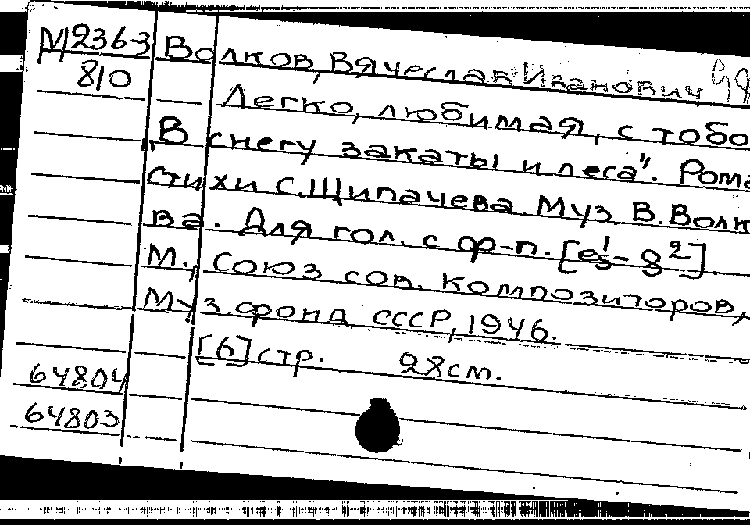 М236-3 Волков, Вячеслав Иванович
810 Легко, любимая, с тобо
„В снегу закаты и леса". Рома
стихи С. Щипачева. Муз. В. Волк
ва. Для гол. с ф-п. [es¹-g²].
М., Союз сов. композиторов,
Муз. фонд СССР, 1946.
[6] стр. 28см.
64804
64803